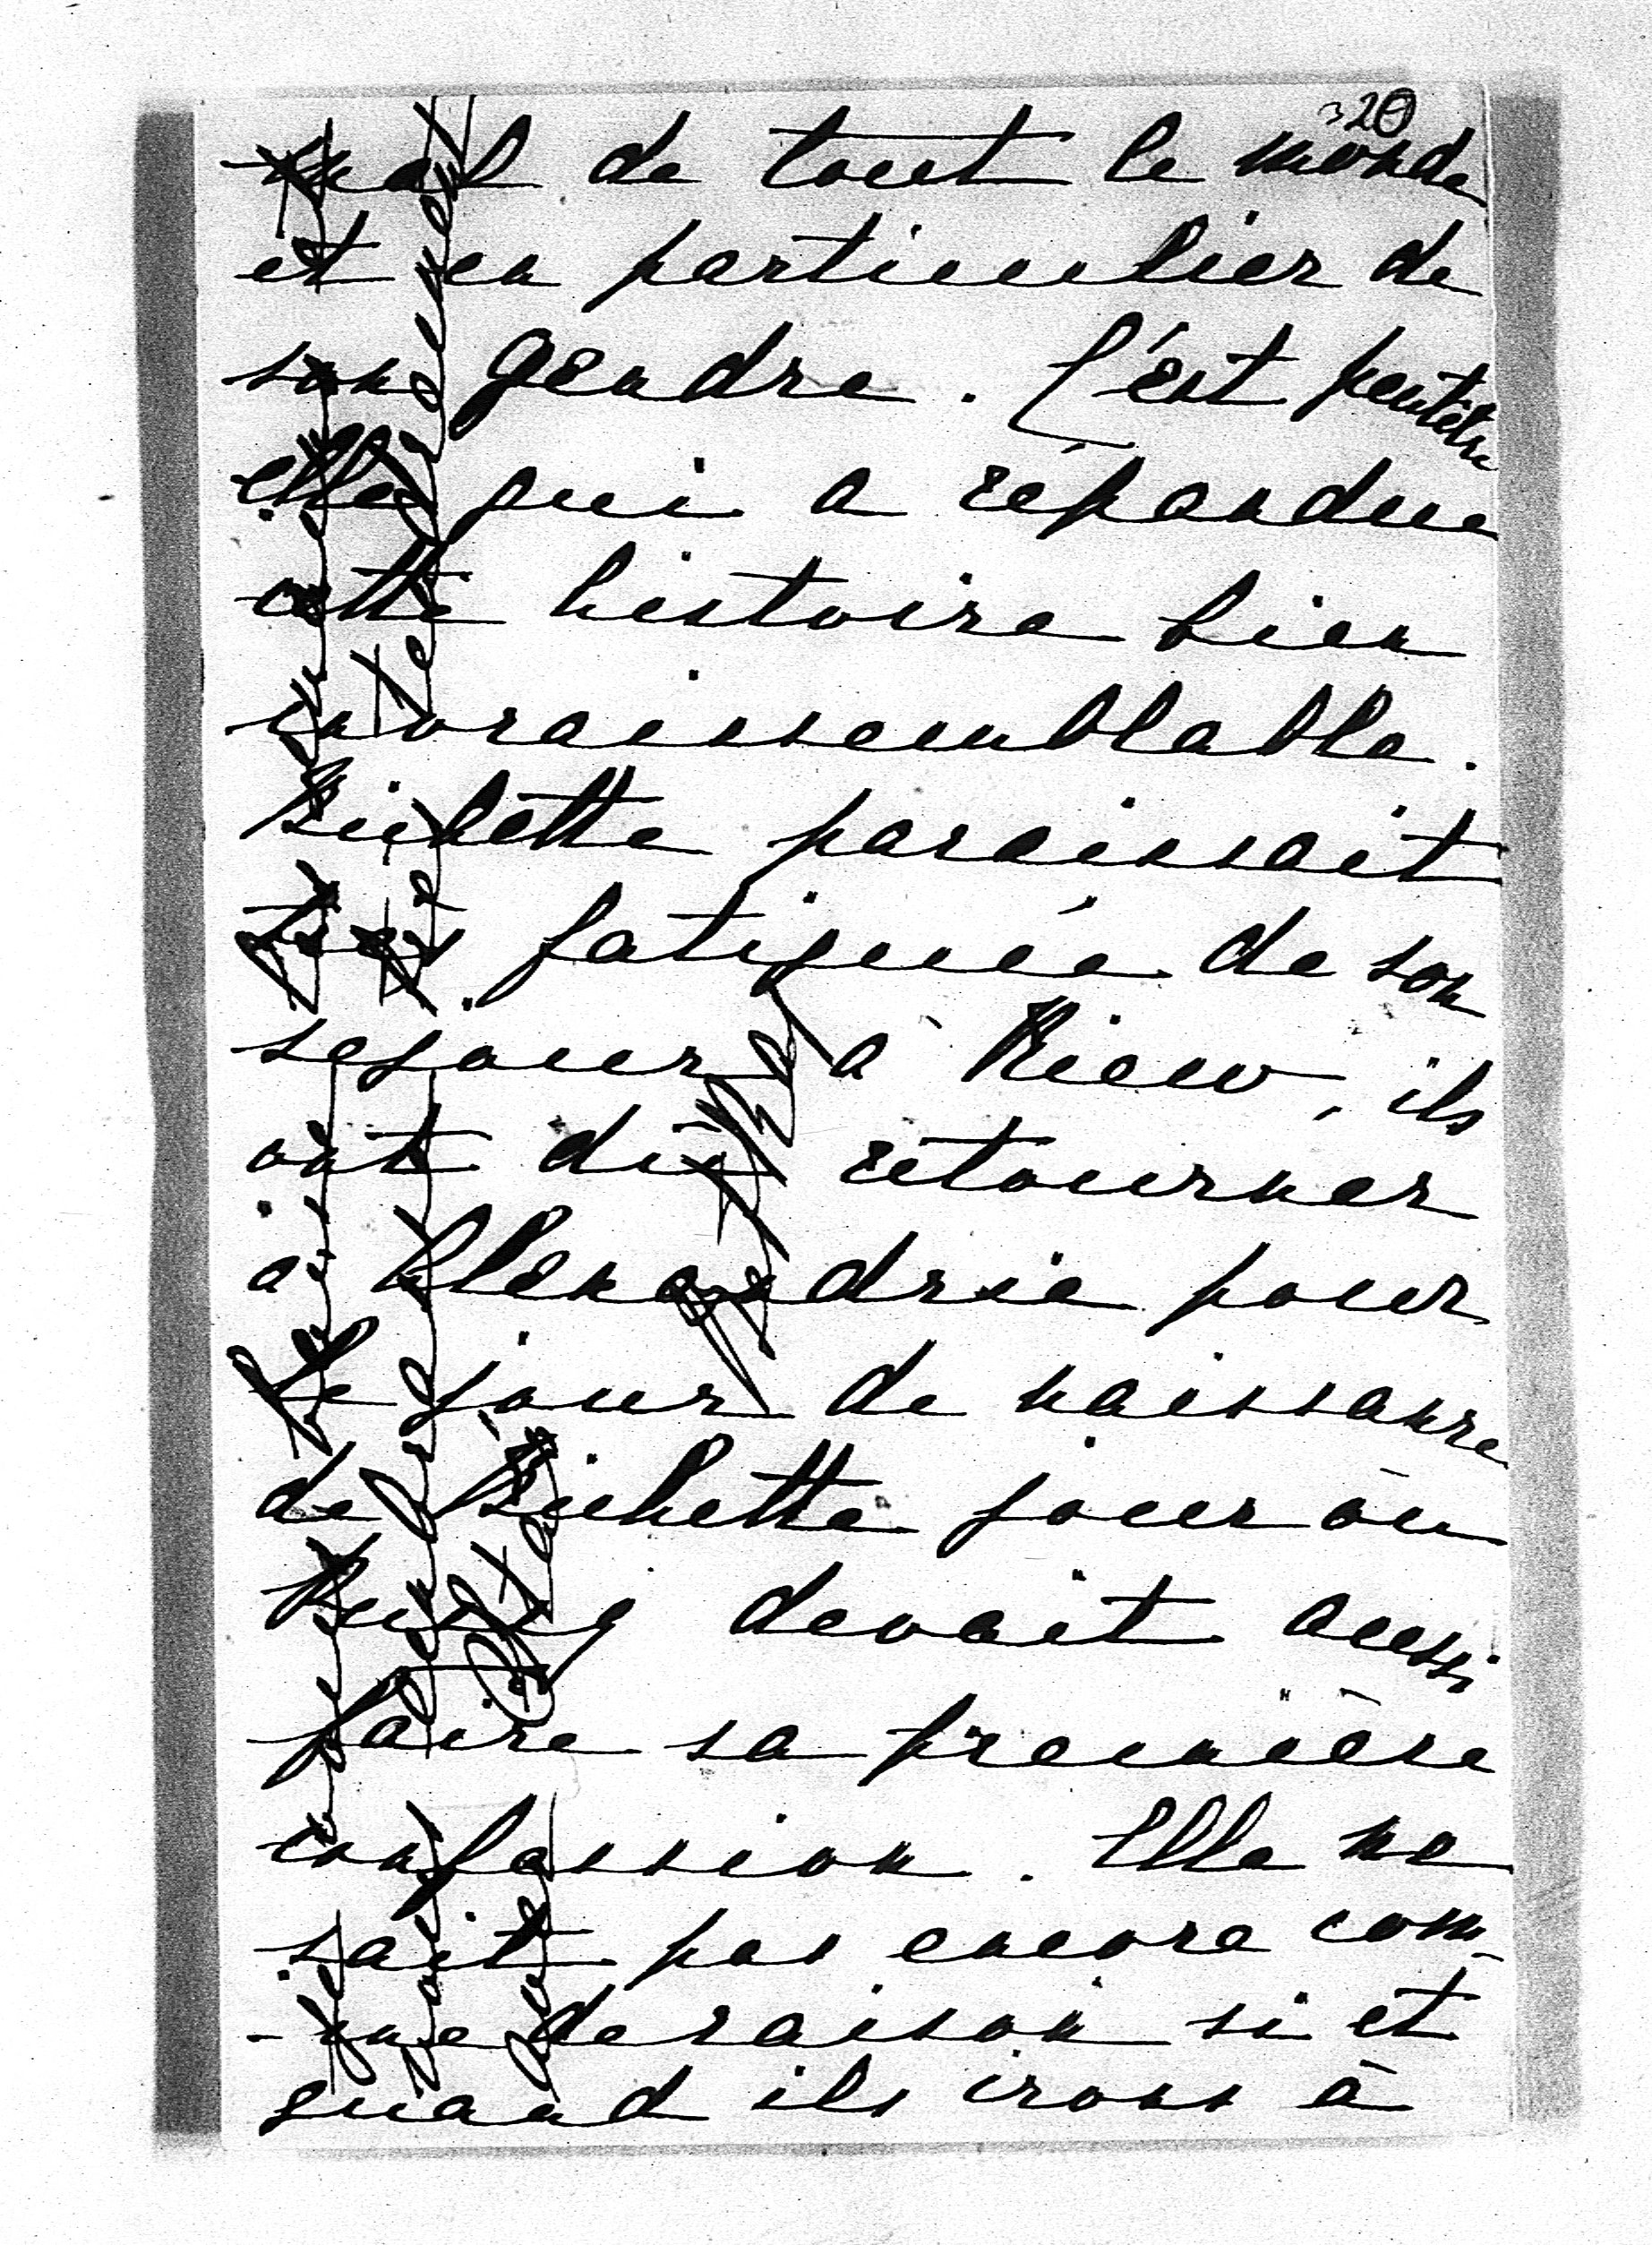 320
mal de tout le monde
et en particulier de
son gendre. C'est peutêtre
elle qui a répandue
cette histoire bien
invraissemblable.
Bichette paraissait
très fatiguée de son
sejour à Kiew, ils
ont dû retourner
à Alexandrie pour
le jour de naissance
de Bichette jour où
devait aussi
faire sa première
confession. Elle ne
sait pas encore com-
-me de raison si et
quand ils irons à